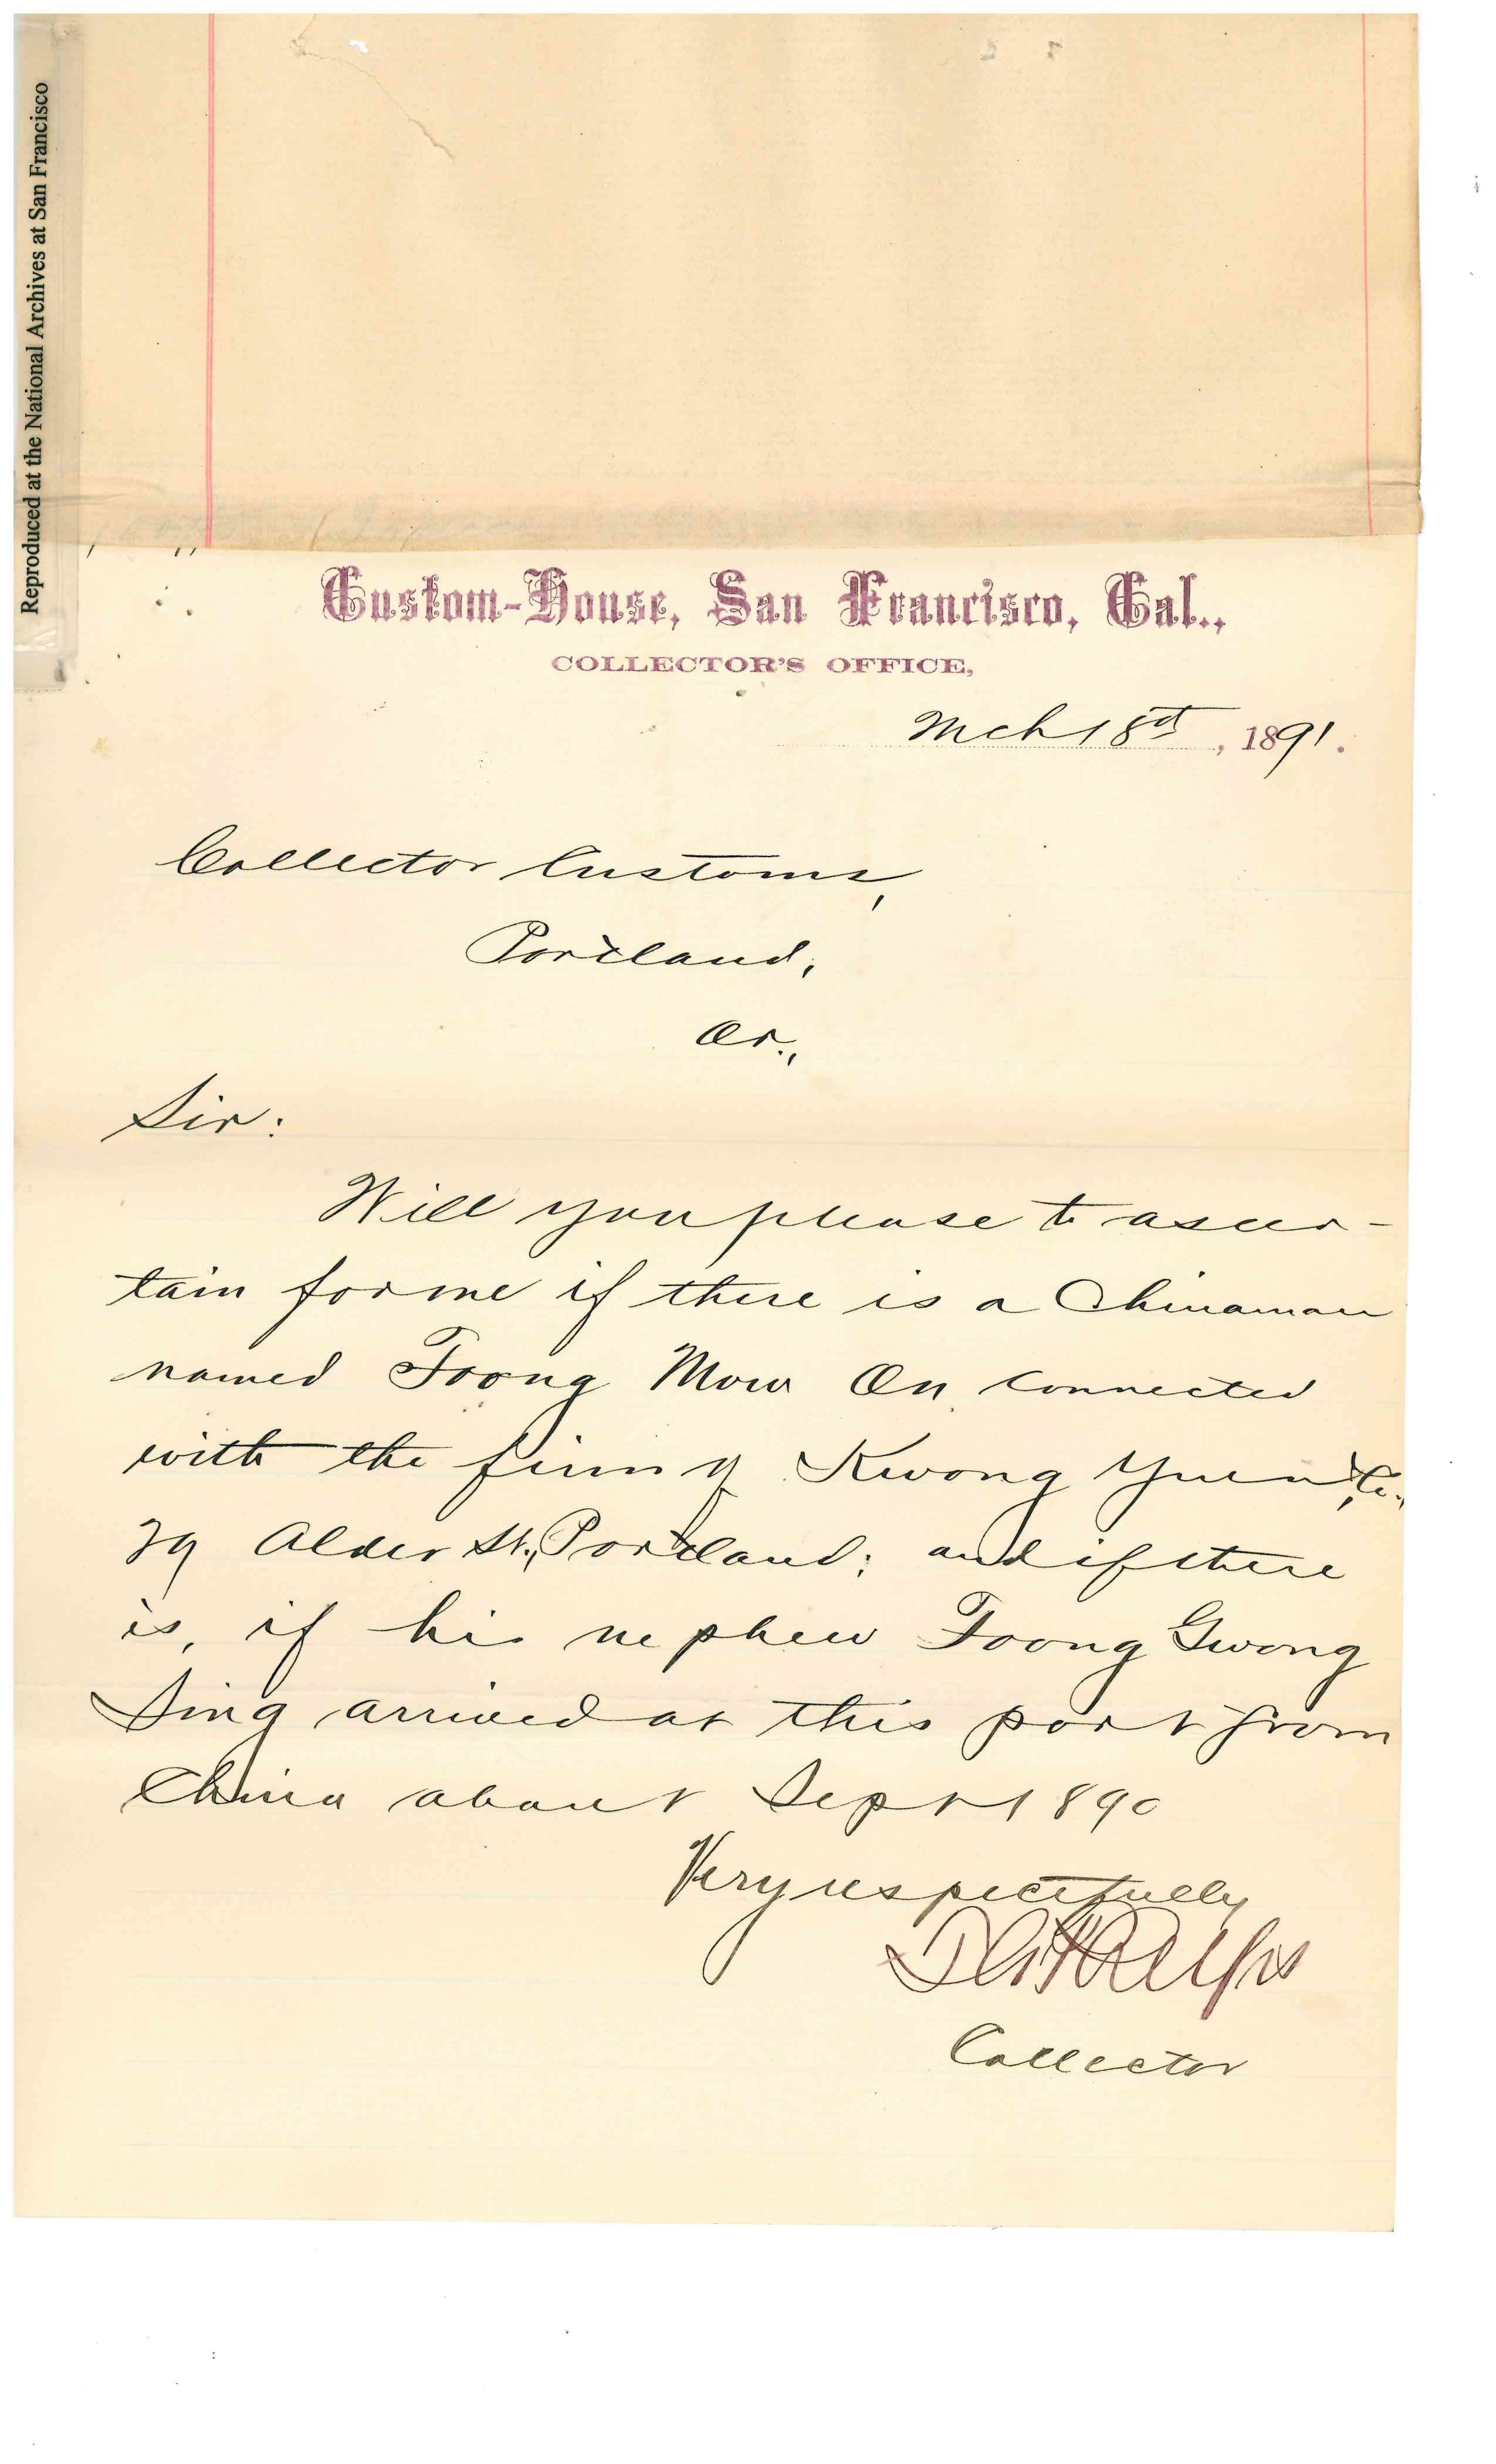 Reproduced at the National Archives at San Francisco
Custom-House, San Francisco, Cal.,
COLLECTOR'S OFFICE,
Mch 18th, 1891.
Collector Customs,
Portland,
Or.,
Sir:
Will you please to ascer-
tain for me if there is a Chinaman
named Foong Mow On connected
with the firm of Kwong Yuen & Co.,
Alder St., Portland; and if there
is, if his nephew Foong Gwong
Sing arrived at this port from
China about Sept 1890
Very respectfully
Collector